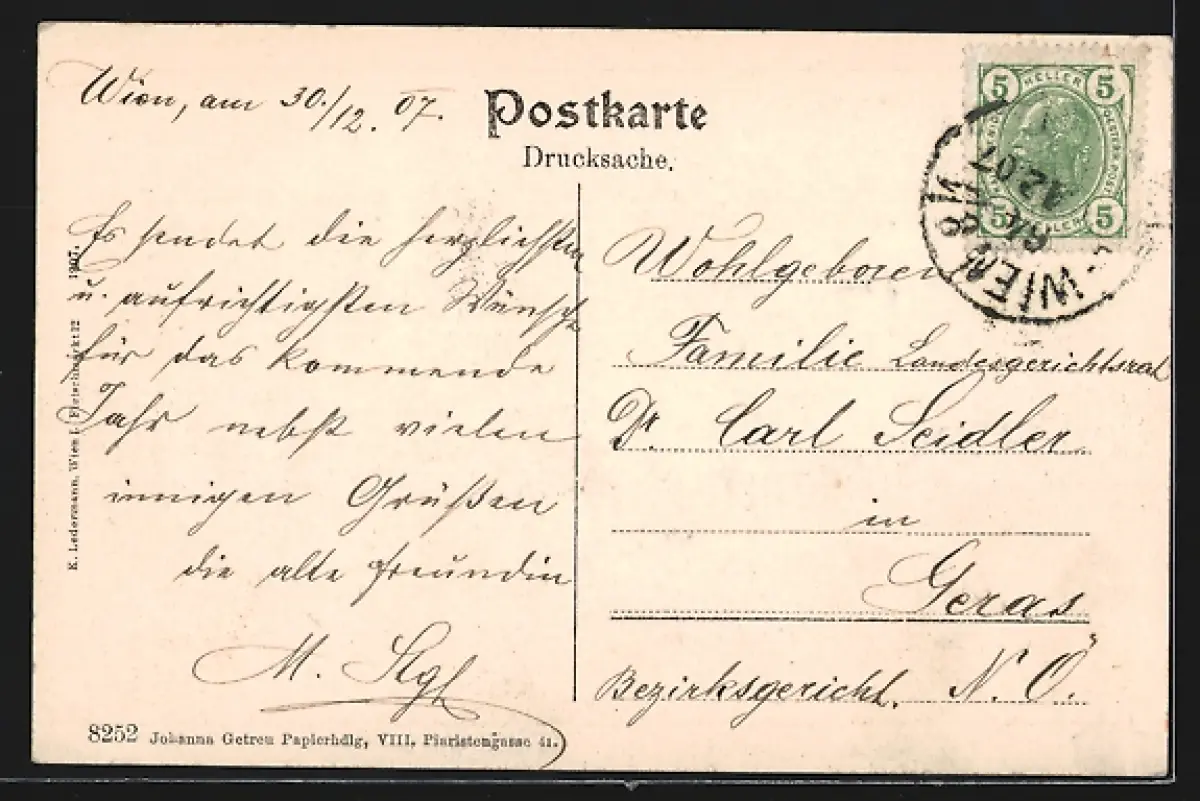 Wien, am 30./12. 07.
Postkarte
Drucksache.
Es sendet die herzlichsten
u. aufrichtigsten Wünsche
für das kommende
Jahr nebst vielen
innigen Grüßen
die alte Freundin
M.
Wohlgeboren
Familie Landesgerichtsrat
Dr. Carl Seidler
in
Geras
Bezirksgericht. N. Ö.
5 HELLER 5
5 HELLER 5
WIEN
12.07
K. Ledermann, Wien I. Fleischmarkt 12 1907.
8252 Johanna Getreu Papierhdlg, VIII. Piaristengasse 41.